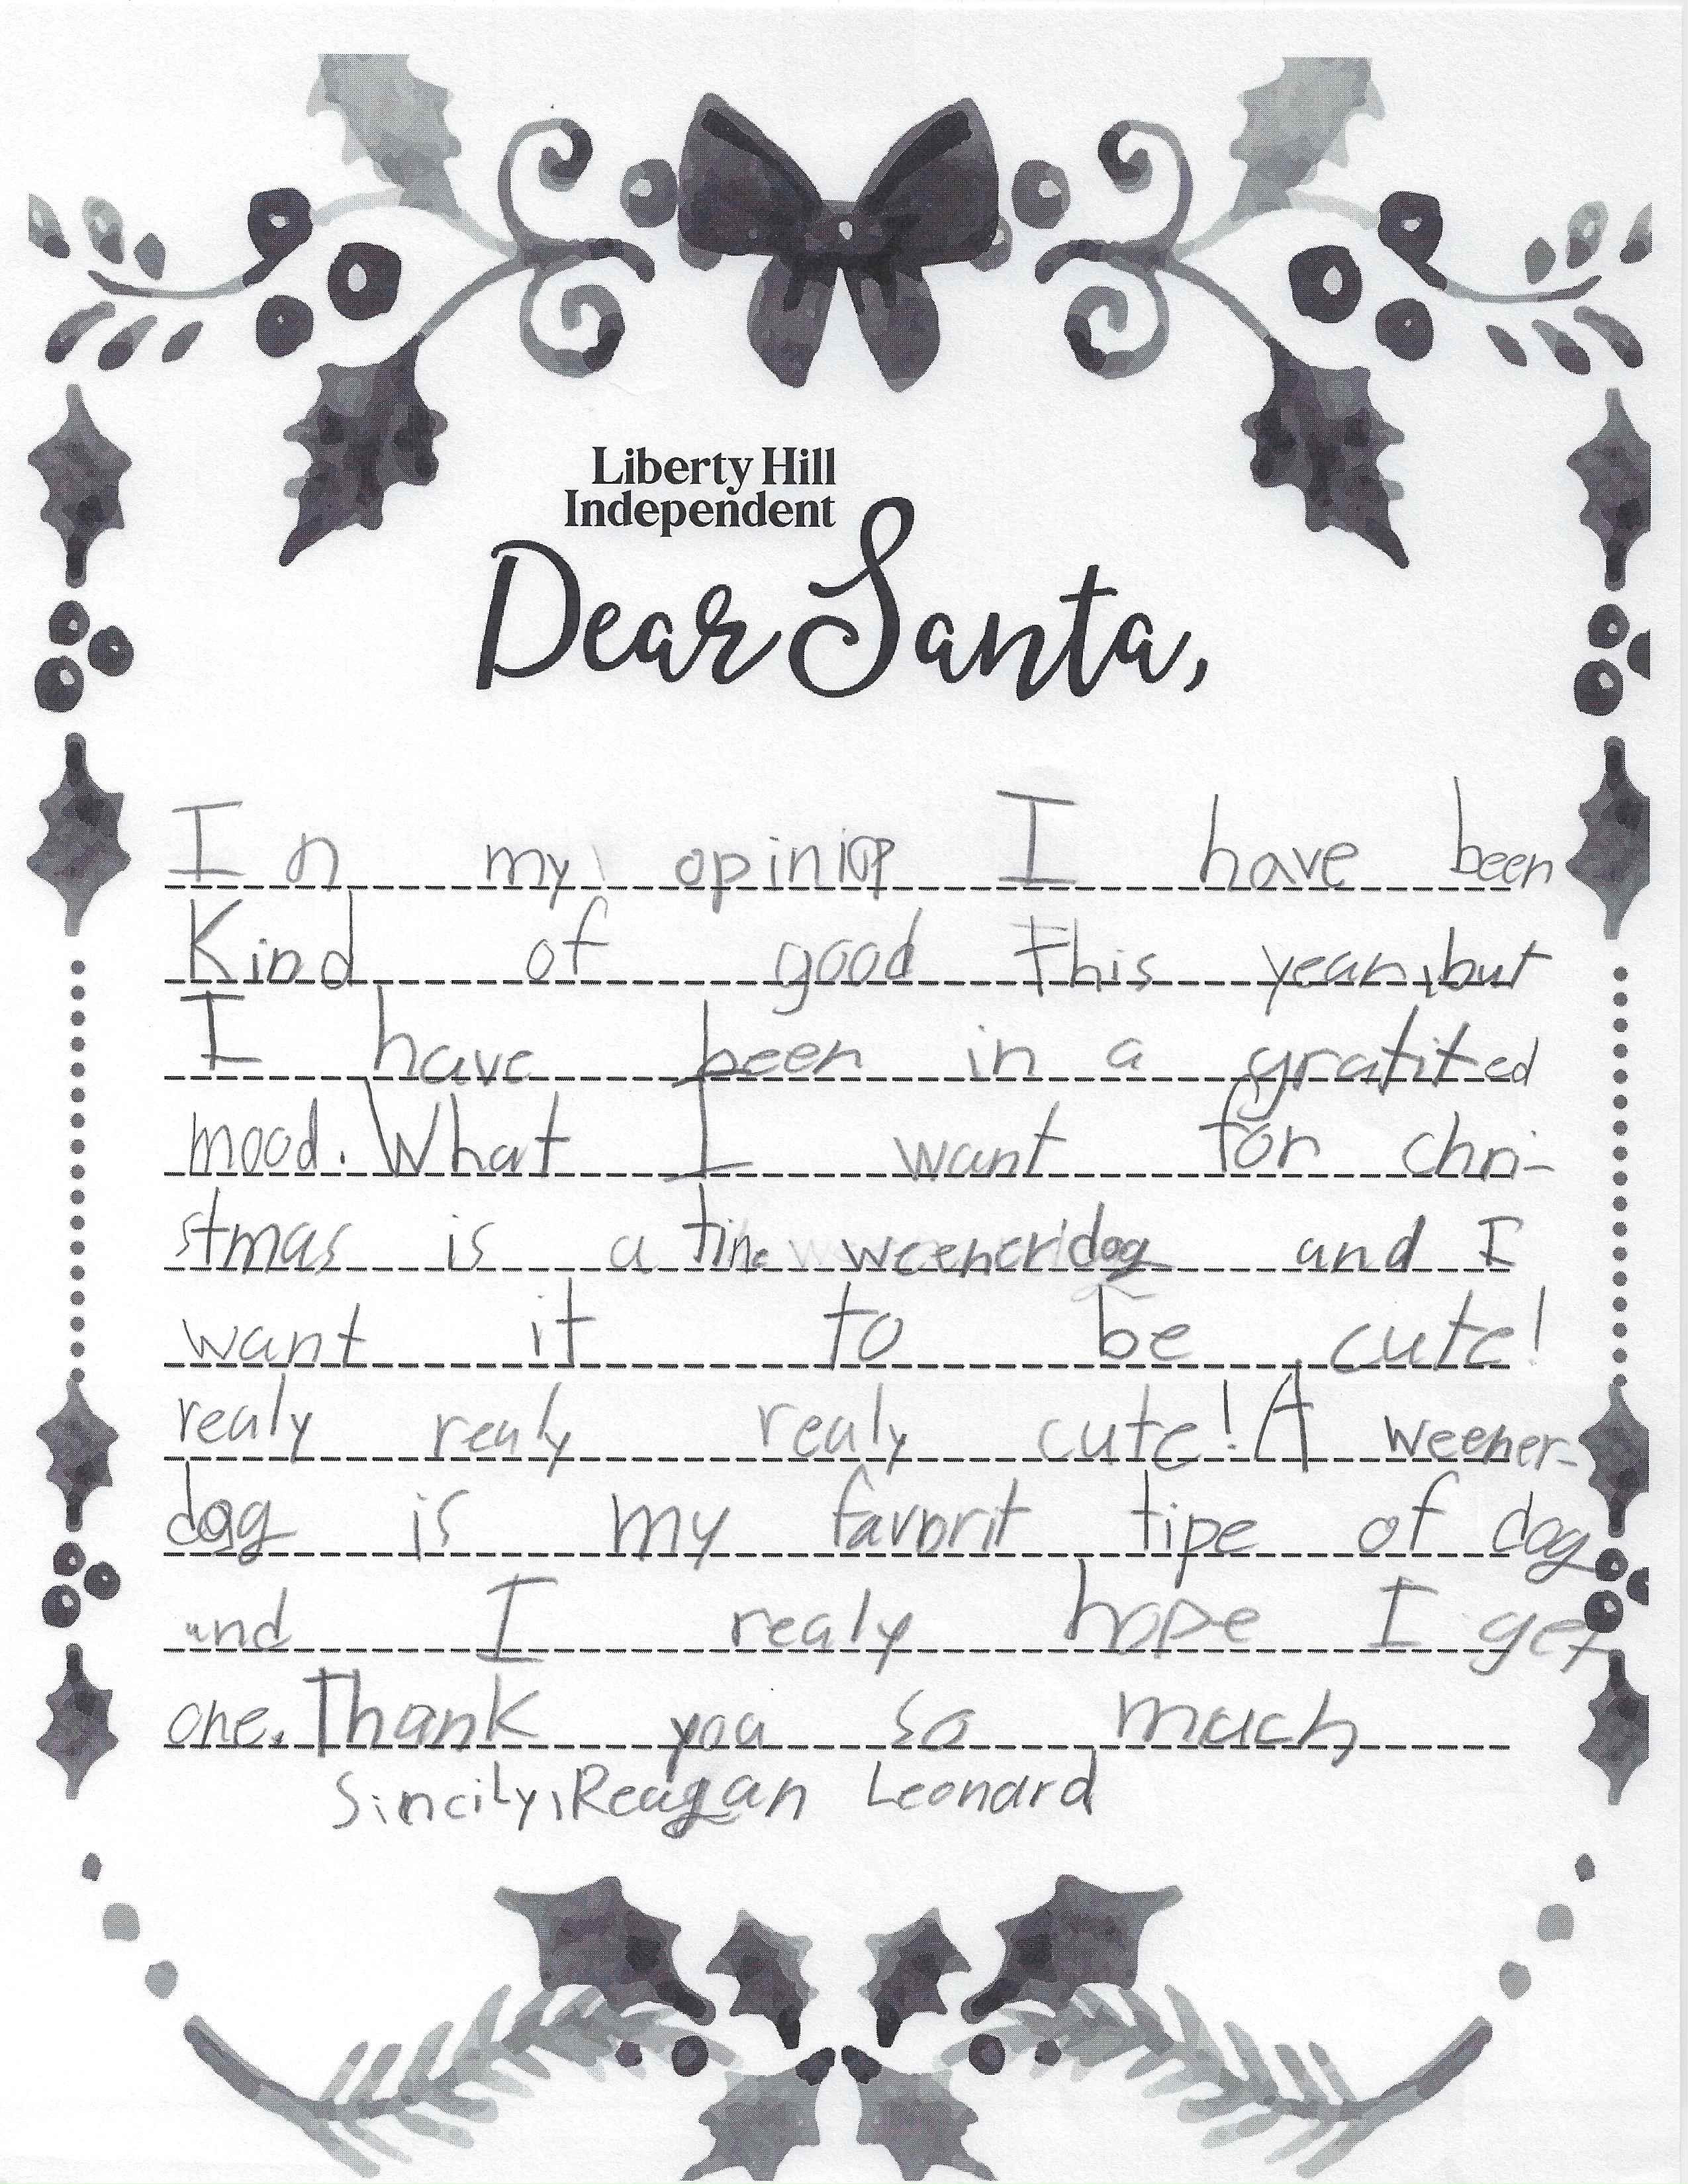 Liberty Hill
Independent
Dear Santa,
In my opinion I have been
Kind of good this year, but
I have been in a gratited
mood. What I want for chri-
stmas is a tine weener dog and I
want it to be cute!
realy realy realy cute! A weener-
dog is my favorit tipe of dog
and I realy hope I get
one. Thank you so much
Sincily, Reagan Leonard